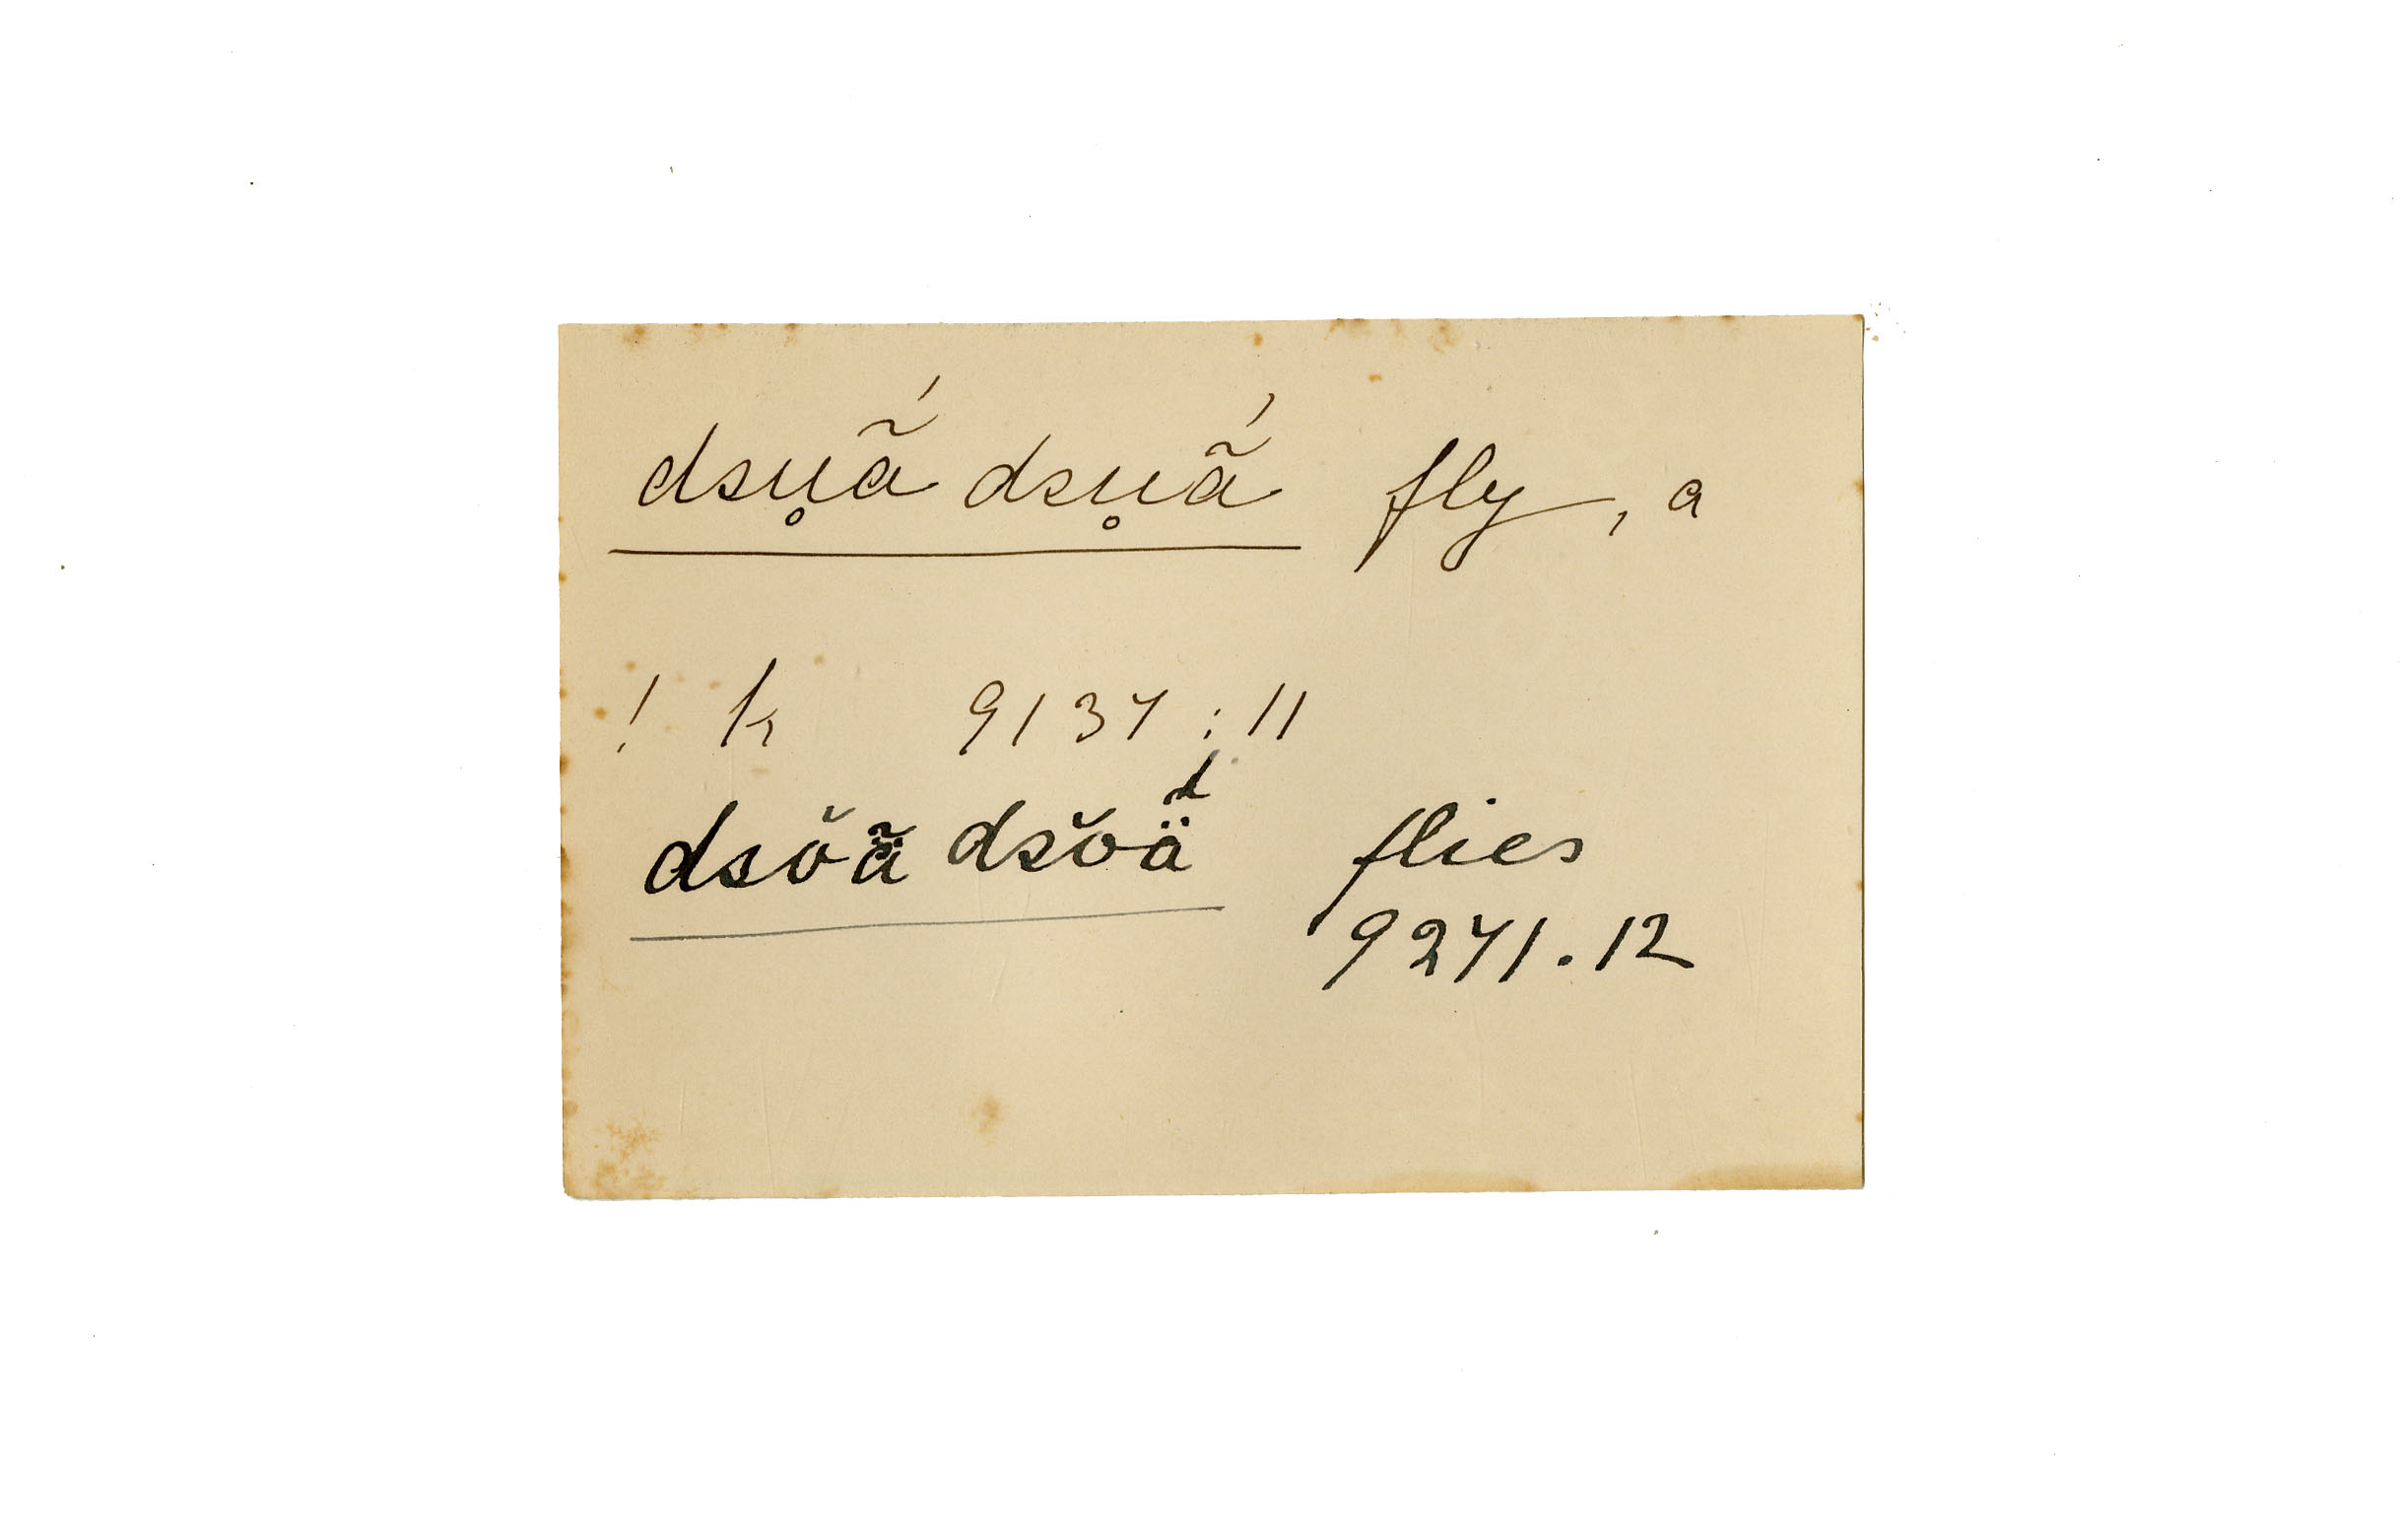 dsu̥ã́ dsu̥ã́ fly, a
! k 9137 : 11
dsŏä̃ dsŏä̃́ flies
9271. 12